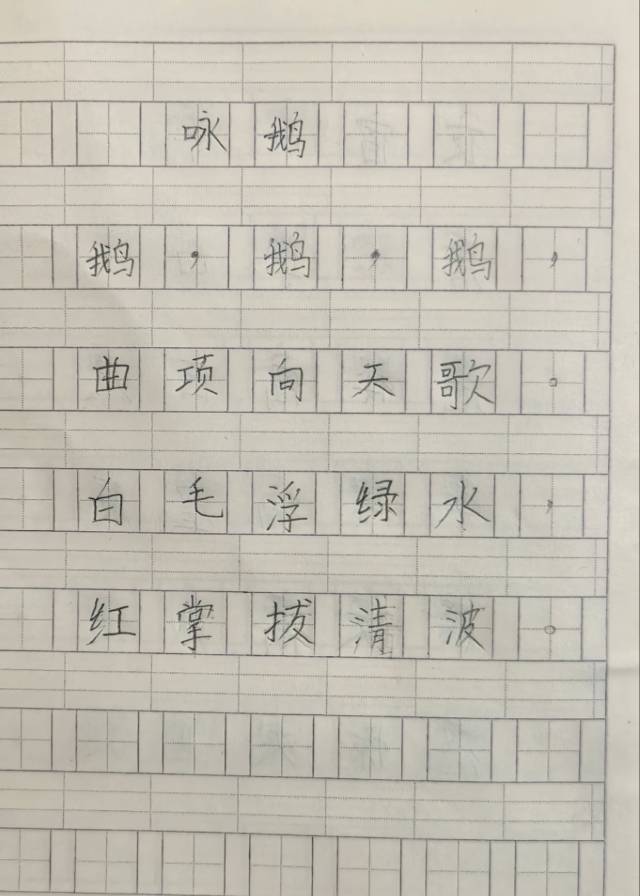 咏鹅
鹅，鹅，鹅，
曲项向天歌。
白毛浮绿水，
红掌拔清波。